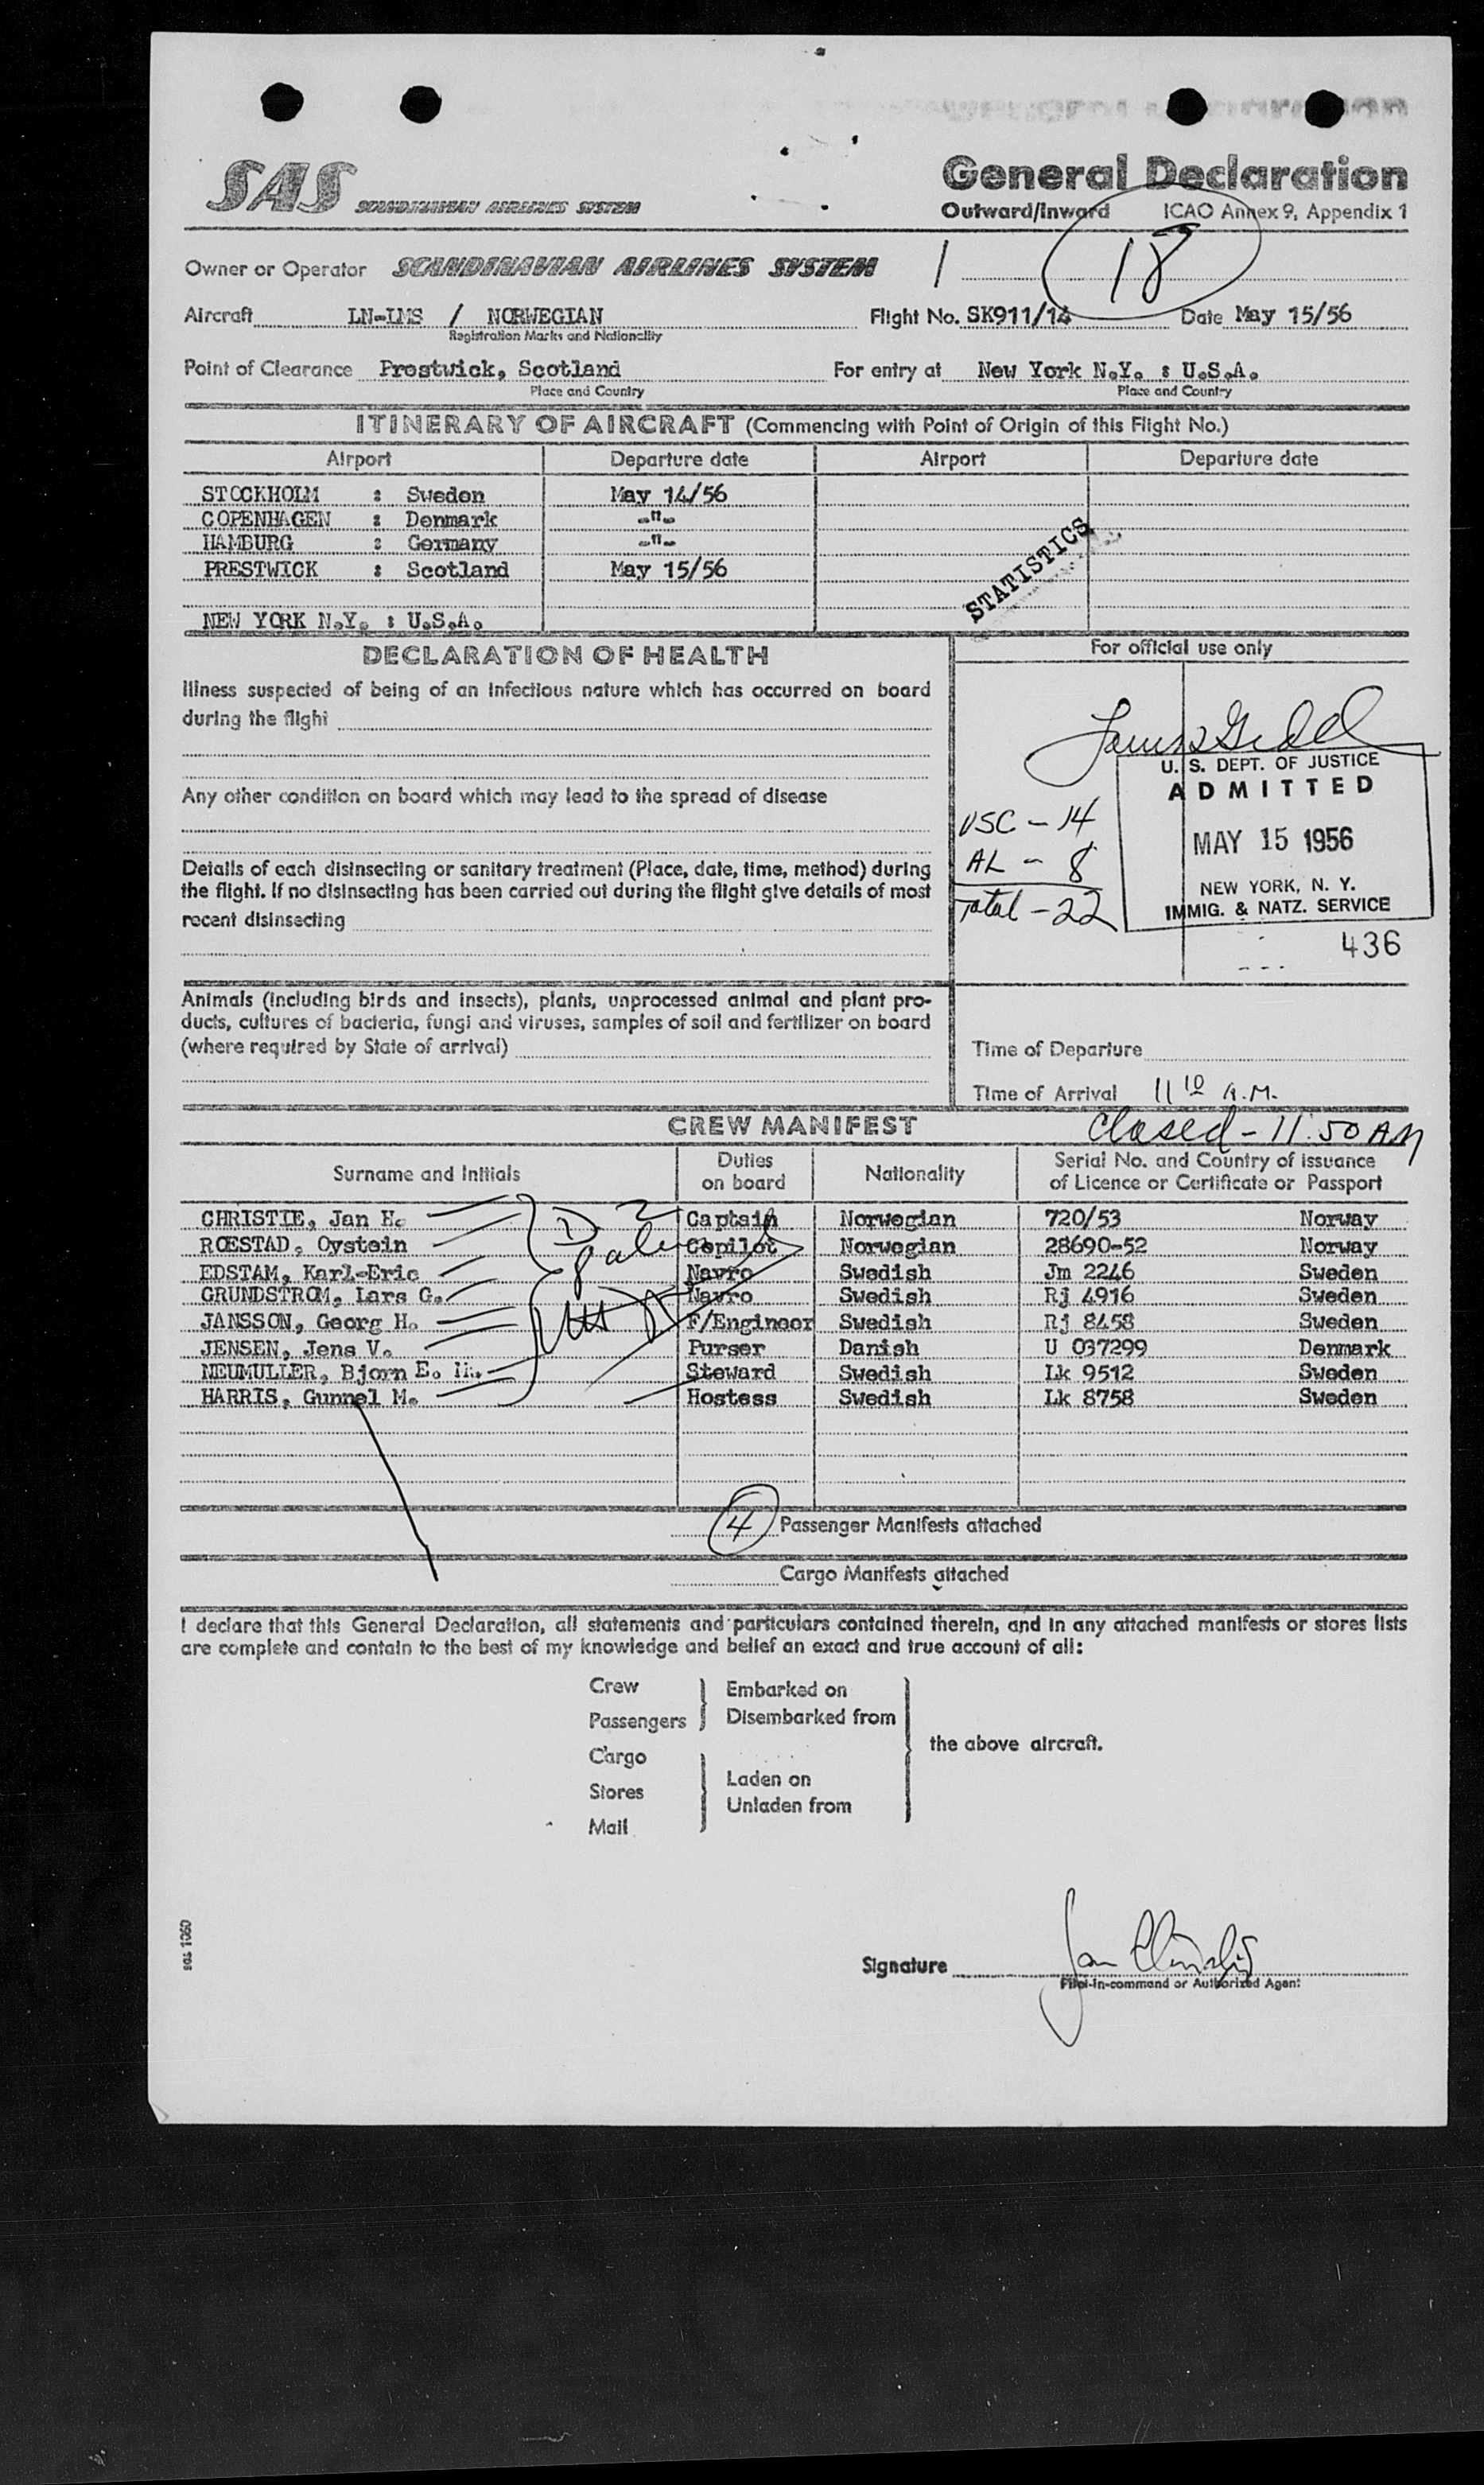 SAS SCANDINAVIAN AIRLINES SYSTEM
General Declaration
Outward/Inward ICAO Annex 9, Appendix 1
18
Owner or Operator SCANDINAVIAN AIRLINES SYSTEM
Aircraft LN-LMS / NORWEGIAN Flight No. SK911/14 Date May 15/56
Registration Marks and Nationality
Point of Clearance Prestwick, Scotland For entry at New York N.Y. : U.S.A.
Place and Country Place and Country
ITINERARY OF AIRCRAFT (Commencing with Point of Origin of this Flight No.)
Airport Departure date Airport Departure date
STOCKHOLM : Sweden May 14/56
COPENHAGEN : Denmark -"-
HAMBURG : Germany -"-
PRESTWICK : Scotland May 15/56
NEW YORK N.Y. : U.S.A.
STATISTICS
DECLARATION OF HEALTH
Illness suspected of being of an infectious nature which has occurred on board
during the flight
Any other condition on board which may lead to the spread of disease
Details of each disinsecting or sanitary treatment (Place, date, time, method) during
the flight. If no disinsecting has been carried out during the flight give details of most
recent disinsecting
Animals (including birds and insects), plants, unprocessed animal and plant pro-
ducts, cultures of bacteria, fungi and viruses, samples of soil and fertilizer on board
(where required by State of arrival)
For official use only
U. S. DEPT. OF JUSTICE
ADMITTED
MAY 15 1956
NEW YORK, N. Y.
IMMIG. & NATZ. SERVICE
436
USC - 14
AL - 8
Total - 22
Time of Departure
Time of Arrival 11 10 A.M.
Closed - 11:50 AM
CREW MANIFEST
Surname and Initials Duties on board Nationality Serial No. and Country of issuance of Licence or Certificate or Passport
CHRISTIE, Jan H. Captain Norwegian 720/53 Norway
ROESTAD, Oystein Copilot Norwegian 28690-52 Norway
EDSTAM, Karl-Eric Navro Swedish Jm 2246 Sweden
GRUNDSTROM, Lars G. Navro Swedish Rj 4916 Sweden
JANSSON, Georg H. F/Engineer Swedish Rj 8458 Sweden
JENSEN, Jens V. Purser Danish U 037299 Denmark
NEUMULLER, Bjorn E. H. Steward Swedish Lk 9512 Sweden
HARRIS, Gunnel M. Hostess Swedish Lk 8758 Sweden
4 Passenger Manifests attached
Cargo Manifests attached
I declare that this General Declaration, all statements and particulars contained therein, and in any attached manifests or stores lists
are complete and contain to the best of my knowledge and belief an exact and true account of all:
Crew
Passengers
Embarked on
Disembarked from
Cargo
Stores
Mail
Laden on
Unladen from
the above aircraft.
sas 1060
Signature Jan Christie
Pilot-in-command or Authorized Agent